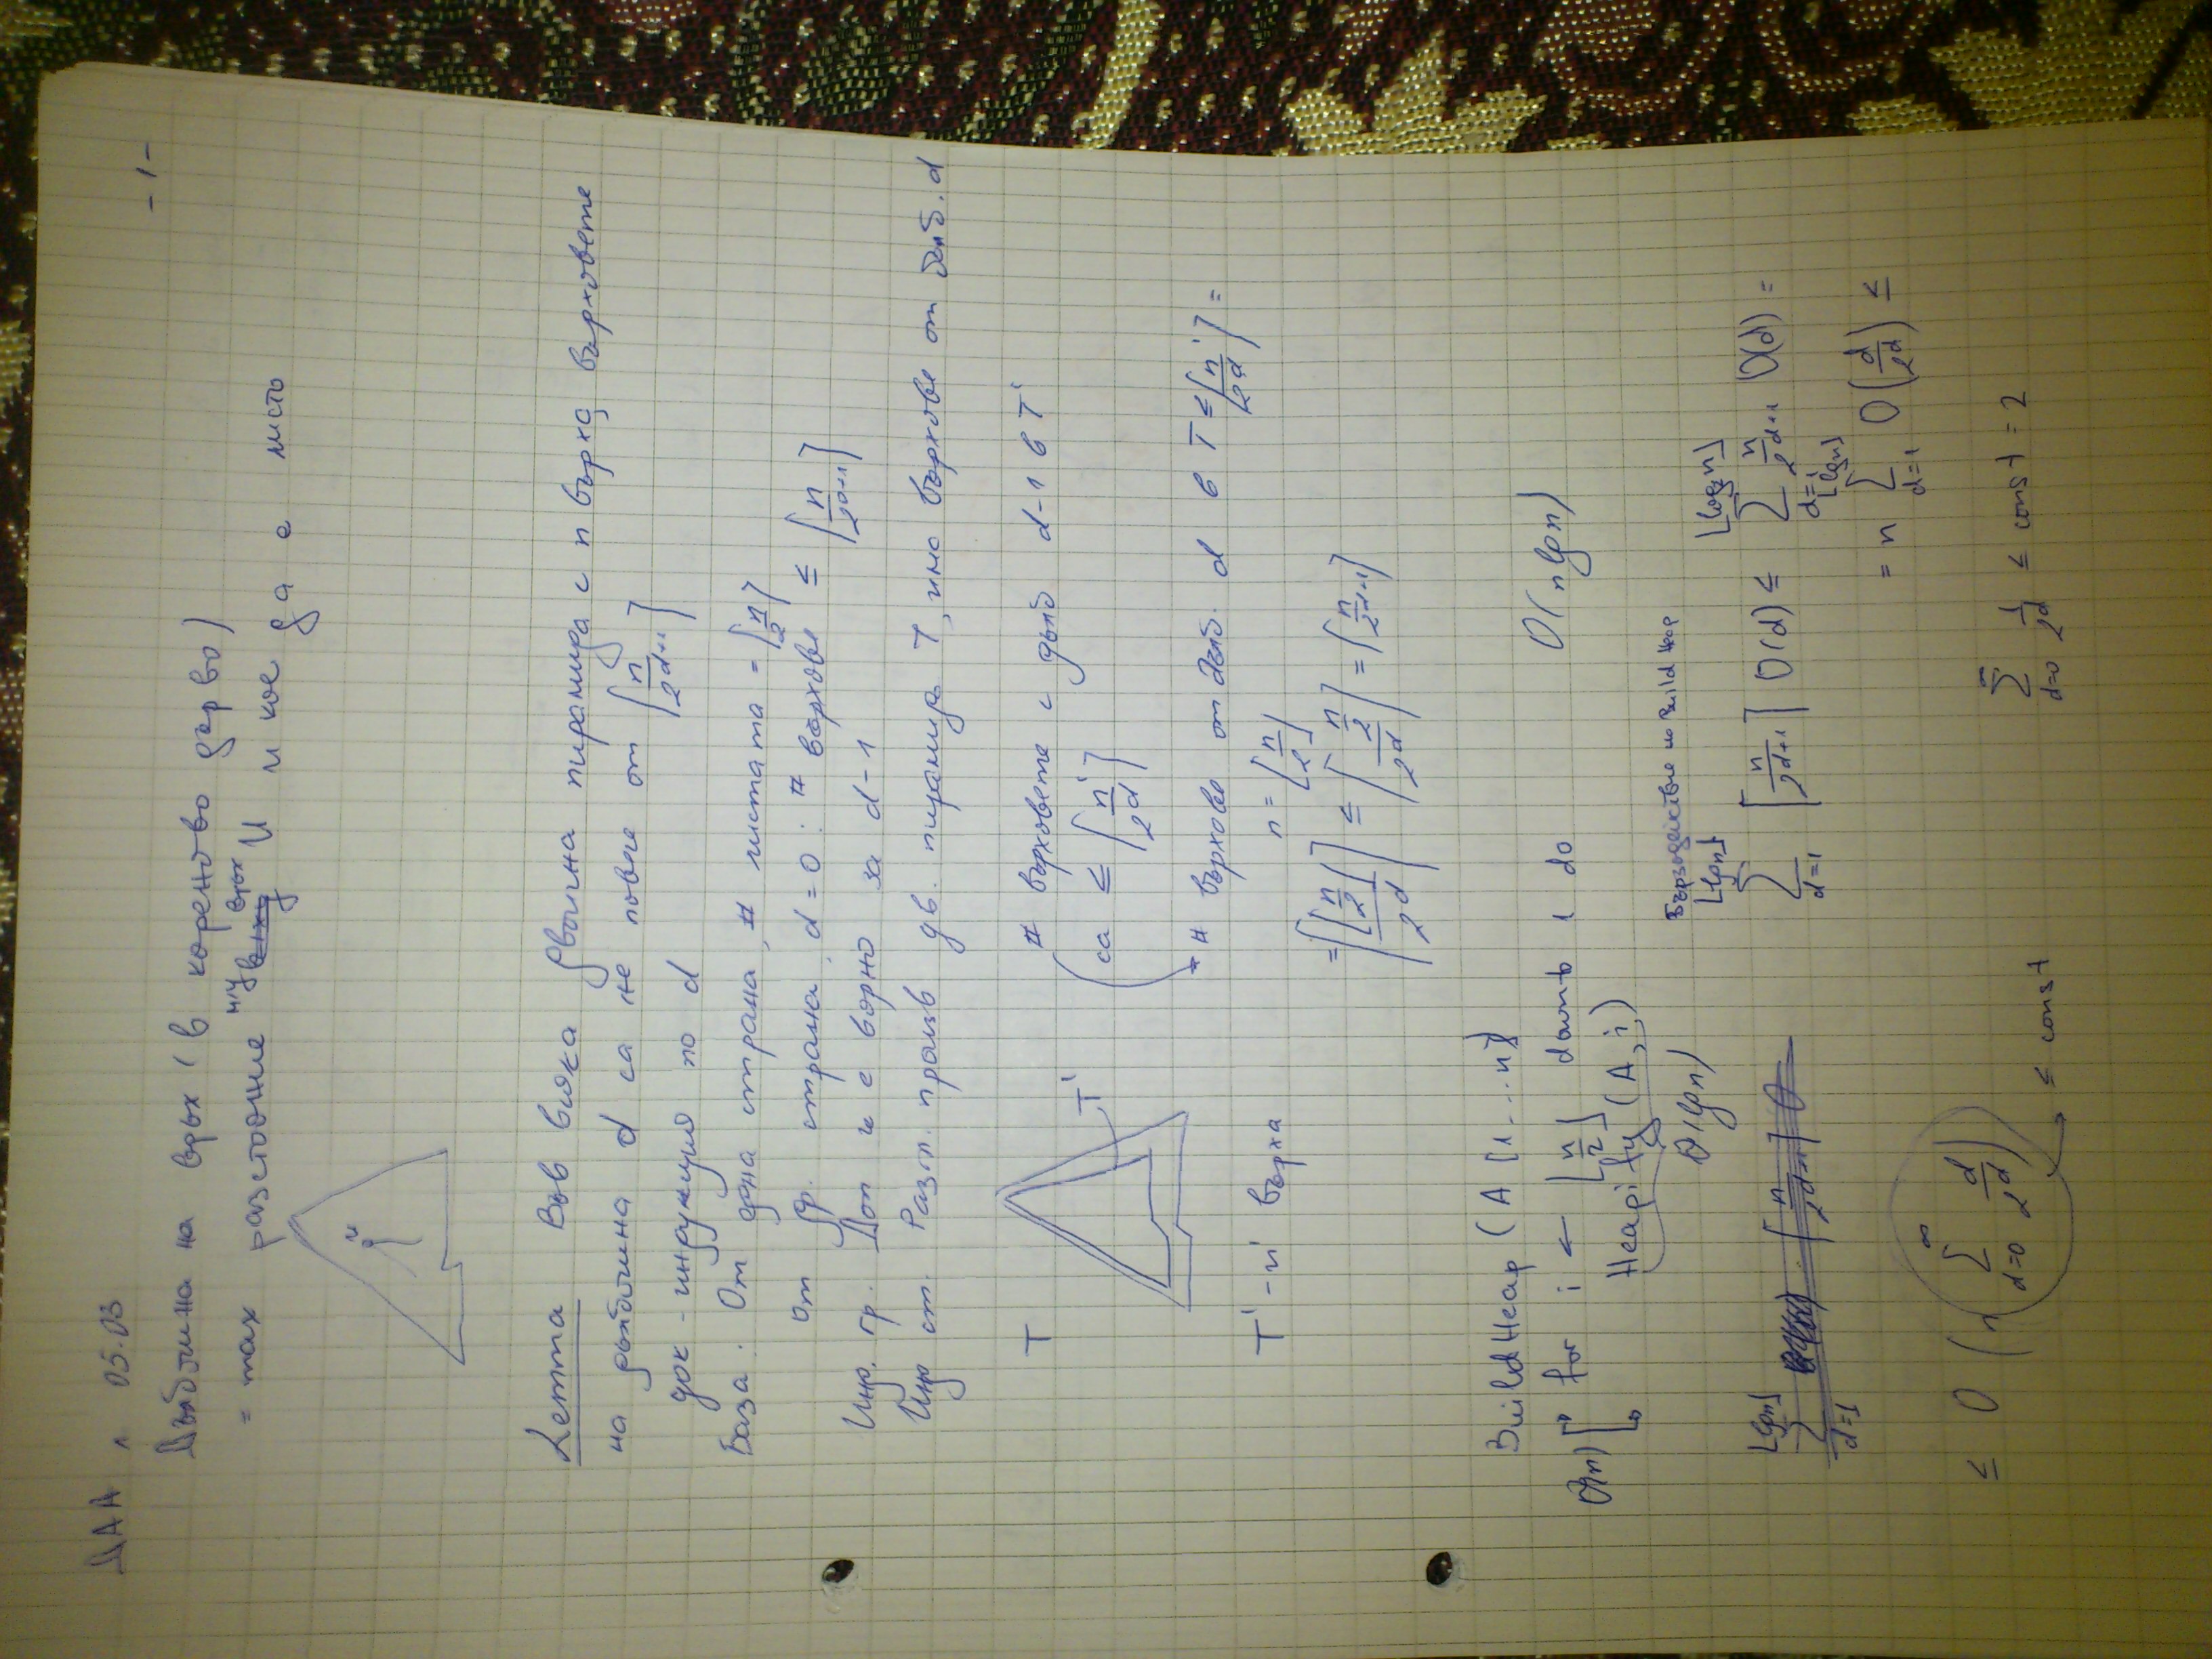 ДАА л 05.03
-1-
Дълбочина на връх (в кореново дърво)
= max разстояние м/у връх u и кое да е листо
u
Lemma Във всяка двоична пирамида с n върха, върховете
на дълбочина d са не повече от ⌈n/2^(d+1)⌉
док-индукция по d
База: От една страна, # листата = ⌈n/2⌉
от др. страна, d=0: # върхове ≤ ⌈n/2^(0+1)⌉
Инд. пр. Доп. че е вярно за d-1
Инд ст. Разгл. произв дв. пирамида T, има върхове от дълб. d
T T'
# върховете с дълб d-1 в T'
(са ≤ ⌈n'/2^d⌉
* # върхове от дълб. d в T ≤ ⌈n'/2^d⌉ =
T' - n' върха
n = ⌊n/2⌋
= ⌈⌊n/2⌋/2^d⌉ ≤ ⌈(n/2)/2^d⌉ = ⌈n/2^(d+1)⌉
BuildHeap (A[1...n])
O(n) for i ← ⌊n/2⌋ downto 1 do O(n lg n)
Heapify (A, i)
O(lg n)
Бързодействие на Build Heap
∑_{d=1}^{⌊lg n⌋} ⌈n/2^(d+1)⌉ O(d) ≤ ∑_{d=1}^{⌊log₂n⌋} n/2^(d+1) O(d) =
= n ∑_{d=1}^{⌊lg n⌋} O(d/2^d) ≤
≤ O(n ∑_{d=0}^{∞} d/2^d) ≤ const
∑_{d=0}^{∞} 1/2^d ≤ const = 2